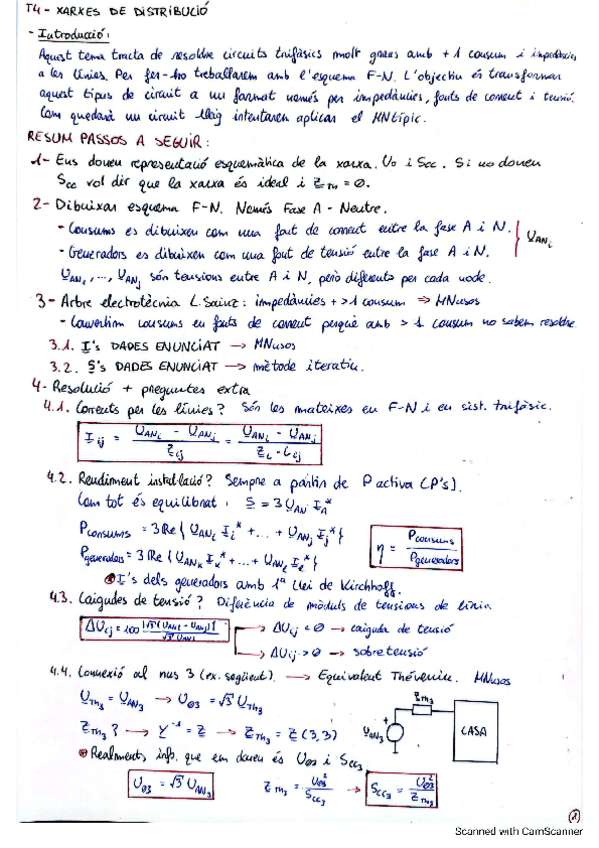 T4 - XARXES DE DISTRIBUCIÓ
- Introducció:
Aquest tema tracta de resoldre circuits trifàsics molt grans amb +1 consum i impedàncies
a les línies. Per fer-ho treballarem amb l'esquema F-N. L'objectiu és transformar
aquest tipus de circuit a un format només per impedàncies, fonts de corrent i tensió.
Com quedarà un circuit lleig intentarem aplicar el MNtípic.
RESUM PASSOS A SEGUIR:
1- Ens donen representació esquemàtica de la xarxa. U0 i Scc. Si no donen
Scc vol dir que la xarxa és ideal i ZTh = 0.
2- Dibuixar esquema F-N. Només Fase A - Neutre.
- Consums es dibuixen com una font de corrent entre la fase A i N.
- Generadors es dibuixen com una font de tensió entre la fase A i N.
UANi
UANi, ..., UANj són tensions entre A i N, però diferents per cada node.
3- Arbre electrotècnia L.Sainz: impedàncies + >1 consum ⇒ MNusos
- Convertim consums en fonts de corrent perquè amb > 1 consum no sabem resoldre
3.1. I's DADES ENUNCIAT → MNusos
3.2. S's DADES ENUNCIAT → mètode iteratiu.
4- Resolució + preguntes extra
4.1. Corrents per les línies? Són les mateixes en F-N i en sist. trifàsic.
Iij = (UANi - UANj) / Zij = (UANi - UANj) / (Zi-Lij)
4.2. Rendiment instal·lació? Sempre a partir de P activa (P's).
Com tot és equilibrat: S = 3 UAN IA*
Pconsums = 3 Re{UANi Ii* + ... + UANj Ij*}
η = Pconsums / Pgeneradors
Pgeneradors = 3 Re{UANk Ik* + ... + UANl Il*}
I's dels generadors amb 1ª Llei de Kirchhoff.
4.3. Caigudes de tensió? Diferència de mòduls de tensions de línia
ΔUij = 100 |√3 (UANi - UANj)| / √3 UANi
→ ΔUij < 0 → caiguda de tensió
→ ΔUij > 0 → sobretensió
4.4. Connexió al nus 3 (ex. següent). → Equivalent Thévenin. MNusos
UTh3 = UAN3 → U03 = √3 UTh3
ZTh3? → Y⁻¹ = Z → ZTh3 = Z(3,3)
ZTh3
+
UAN3
CASA
Realment, info. que em donen és U03 i Scc3
U03 = √3 UAN3
ZTh3 = U03² / Scc3 → Scc3 = U03² / ZTh3
1
Scanned with CamScanner